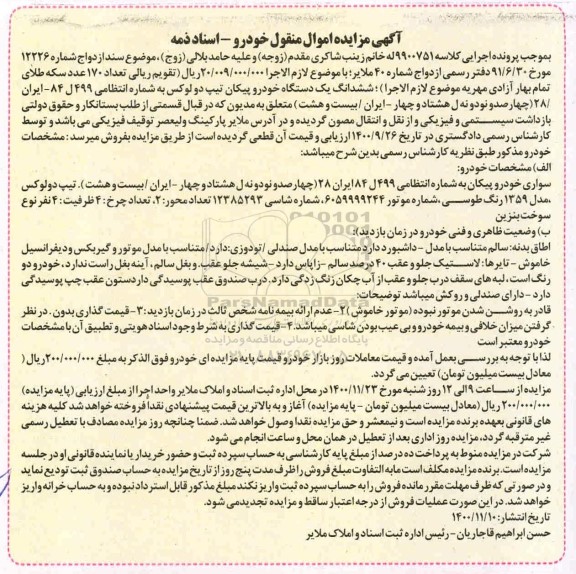 آگهی مزایده اموال منقول خودرو – اسناد ذمه
بموجب پرونده اجرایی کلاسه ۹۹۰۰۷۵۱ له خانم زینب شاکری مقدم (زوجه) و علیه حامد بلالی (زوج) ، موضوع سند ازدواج شماره ۱۲۲۲۶
مورخ ۹۱/۶/۳۰ دفتر رسمی ازدواج شماره ۴۰ ملایر: با موضوع لازم الاجرا ۲۰/۰۰۹/۰۰۰/۰۰۰ ریال (تقویم ریالی تعداد ۱۷۰ عدد سکه طلای
تمام بهار آزادی مهریه موضوع لازم الاجرا) ؛ ششدانگ یک دستگاه خودرو پیکان تیپ دولوکس به شماره انتظامی ۴۹۹ ل ۸۴- ایران
/۲۸ (چهارصدو نود و نه ل هشتاد و چهار - ایران / بیست و هشت) متعلق به مدیون که در قبال قسمتی از طلب بستانکار و حقوق دولتی
بازداشت سیستمی و فیزیکی و از نقل و انتقال مصون گردیده و در آدرس ملایر پارکینگ ولیعصر توقیف فیزیکی می باشد و توسط
کارشناس رسمی دادگستری در تاریخ ۱۴۰۰/۹/۲۶ ارزیابی و قیمت آن قطعی گردیده است از طریق مزایده بفروش میرسد: مشخصات
خودرو مذکور طبق نظریه کارشناس رسمی بدین شرح میباشد:
الف) مشخصات خودرو:
سواری خودرو پیکان به شماره انتظامی ۴۹۹ ل ۸۴ ایران ۲۸ (چهارصدو نود و نه ل هشتاد و چهار - ایران / بیست و هشت). تیپ دولوکس
،مدل ۱۳۵۹ رنگ طوسی، شماره موتور ۶۰۵۹۹۹۹۲۴۴، شماره شاسی ۱۲۳۸۵۲۹۳ تعداد محور: ۲، تعداد چرخ: ۴ ظرفیت: ۴ نفر نوع
سوخت بنزین
ب) وضعیت ظاهری و فنی خودرو در زمان بازدید):
اطاق بدنه: سالم متناسب با مدل - داشبورد دارد متناسب با مدل صندلی / تودوزی: دارد/ متناسب با مدل موتور و گیربکس و دیفرانسیل
خاموش - تایرها: لاستیک جلو و عقب ۴۰ درصد سالم - زاپاس دارد - شیشه جلو عقب. و بغل سالم ، آینه بغل راست ندارد . خودرو دو
رنگ است، لبه های سقف درب جلو و عقب از آب چکان زنگ زدگی دارد. درب صندوق عقب پوسیدگی دارد ستون عقب چپ پوسیدگی
دارد - دارای صندلی و روکش میباشد توضیحات:
قادر به روشن شدن موتور نبوده (موتور خاموش) ۲- عدم ارائه بیمه نامه شخص ثالث در زمان بازدید: ۳- قیمت گذاری بدون . در نظر
گرفتن میزان خلافی و بیمه خودرو و بی عیب بودن شاسی میباشد. ۴- قیمت گذاری به شرط وجود اسناد هویتی و تطبیق آن با مشخصات
خودرو معتبر است
لذا با توجه به بررسی بعمل آمده و قیمت معاملات روز بازار خودرو قیمت پایه مزایده ای خودرو فوق الذکر به مبلغ ۲۰۰/۰۰۰/۰۰۰ ریال (
معادل بیست میلیون تومان) تعیین می گردد.
مزایده از ساعت ۹ الی ۱۲ روز شنبه مورخ ۱۴۰۰/۱۱/۲۳ در محل اداره ثبت اسناد و املاک ملایر واحد اجرا از مبلغ ارزیابی (پایه مزایده)
۲۰۰/۰۰۰/۰۰۰ ریال (معادل بیست میلیون تومان - پایه مزایده) آغاز و به بالاترین قیمت پیشنهادی نقدا فروخته خواهد شد کلیه هزینه
های قانونی بعهده برنده مزایده است و نیمعشر و حق مزایده نقدا وصول خواهد شد. ضمنا چنانچه روز مزایده مصادف با تعطیل رسمی
غیر مترقبه گردد، مزایده روز اداری بعد از تعطیل در همان محل و ساعت انجام می شود.
شرکت در مزایده منوط به پرداخت ده درصد از مبلغ پایه کارشناسی به حساب سپرده ثبت و حضور خریدار یا نماینده قانونی او در جلسه
مزایده است. برنده مزایده مکلف است مابه التفاوت مبلغ فروش را ظرف مدت پنج روز از تاریخ مزایده به حساب صندوق ثبت تودیع نماید
و در صورتی که ظرف مهلت مقرر مانده فروش را به حساب سپرده ثبت واریز نکند مبلغ مذکور قابل استرداد نبوده و به حساب خزانه واریز
خواهد شد. در این صورت عملیات فروش از درجه اعتبار ساقط و مزایده تجدید می شود.
تاریخ انتشار: ۱۴۰۰/۱۱/۱۰
حسن ابراهیم قاجاریان - رئیس اداره ثبت اسناد و املاک ملایر
ParsNamadData
پایگاه اطلاع رسانی مناقصه و مزایده